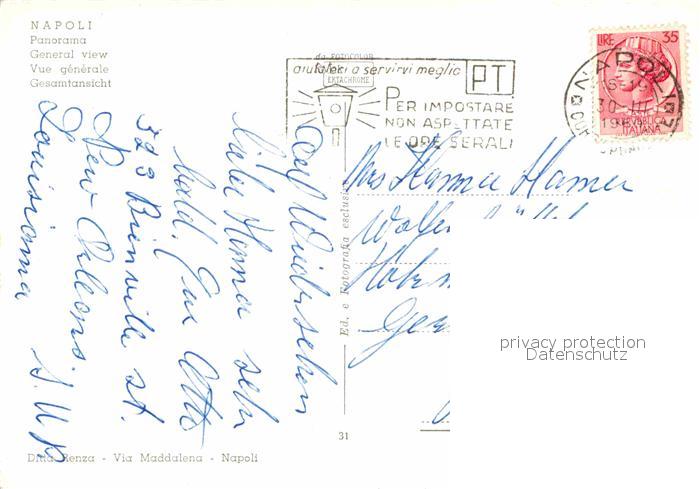 NAPOLI
Panorama
General view
Vue générale
Gesamtansicht
da FOTOCOLOR
EKTACHROME
aiutateci a servirvi meglio
PT
PER IMPOSTARE
NON ASPETTATE
LE ORE SERALI
LIRE 35
NAPOLI
30 III
REPUBBLICA
ITALIANA
Auf Wiedersehen
liebe Hanna sehr
bald. Otto
323 Bienville st.
New Orleans.
Louisiana
Mrs Hanna Hamer
Ed. e Fotografia esclusive
privacy protection
Datenschutz
31
Ditta Renza - Via Maddalena - Napoli